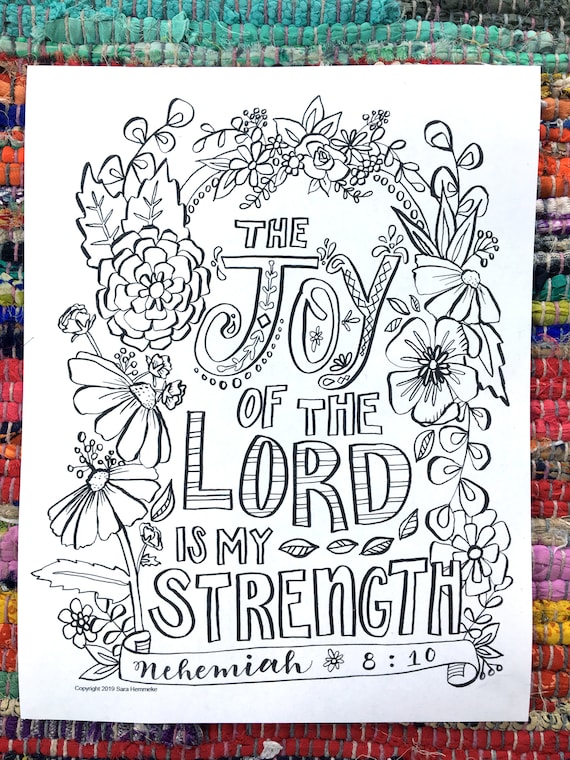 THE
JOY
OF THE
LORD
IS MY
STRENGTH
Nehemiah 8:10
Copyright 2019 Sara Hemmeke